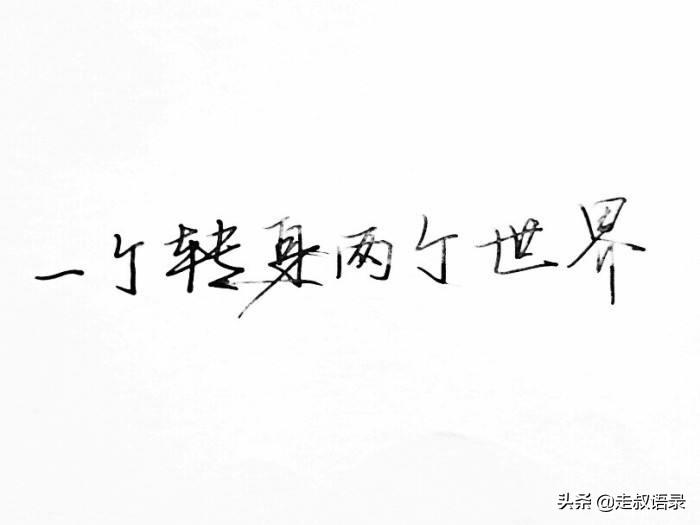 一个转身两个世界
头条 @走叔语录